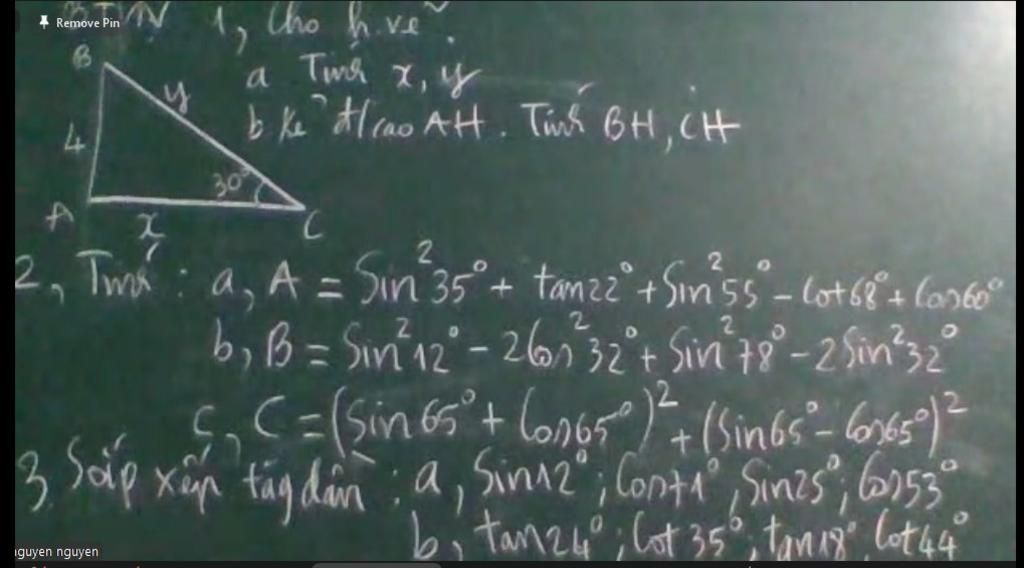 Remove Pin
BTVN 1, Cho h.vẽ.
a Tính x, y
b kẻ đ/cao AH. Tính BH, CH
B
y
4
30°
A
x
C
2, Tính : a, A = Sin²35° + tan22° + Sin²55° - Cot68° + Cos60°
b, B = Sin²12° - 2Cos²32° + Sin²78° - 2Sin²32°
c, C = (Sin65° + Cos65°)² + (Sin65° - Cos65°)²
3, Sắp xếp tăg dần : a, Sin12° ; Cos71° , Sin25° ; Cos53°
b, tan24° ; Cot35° ; tan18° Cot44°
nguyen nguyen